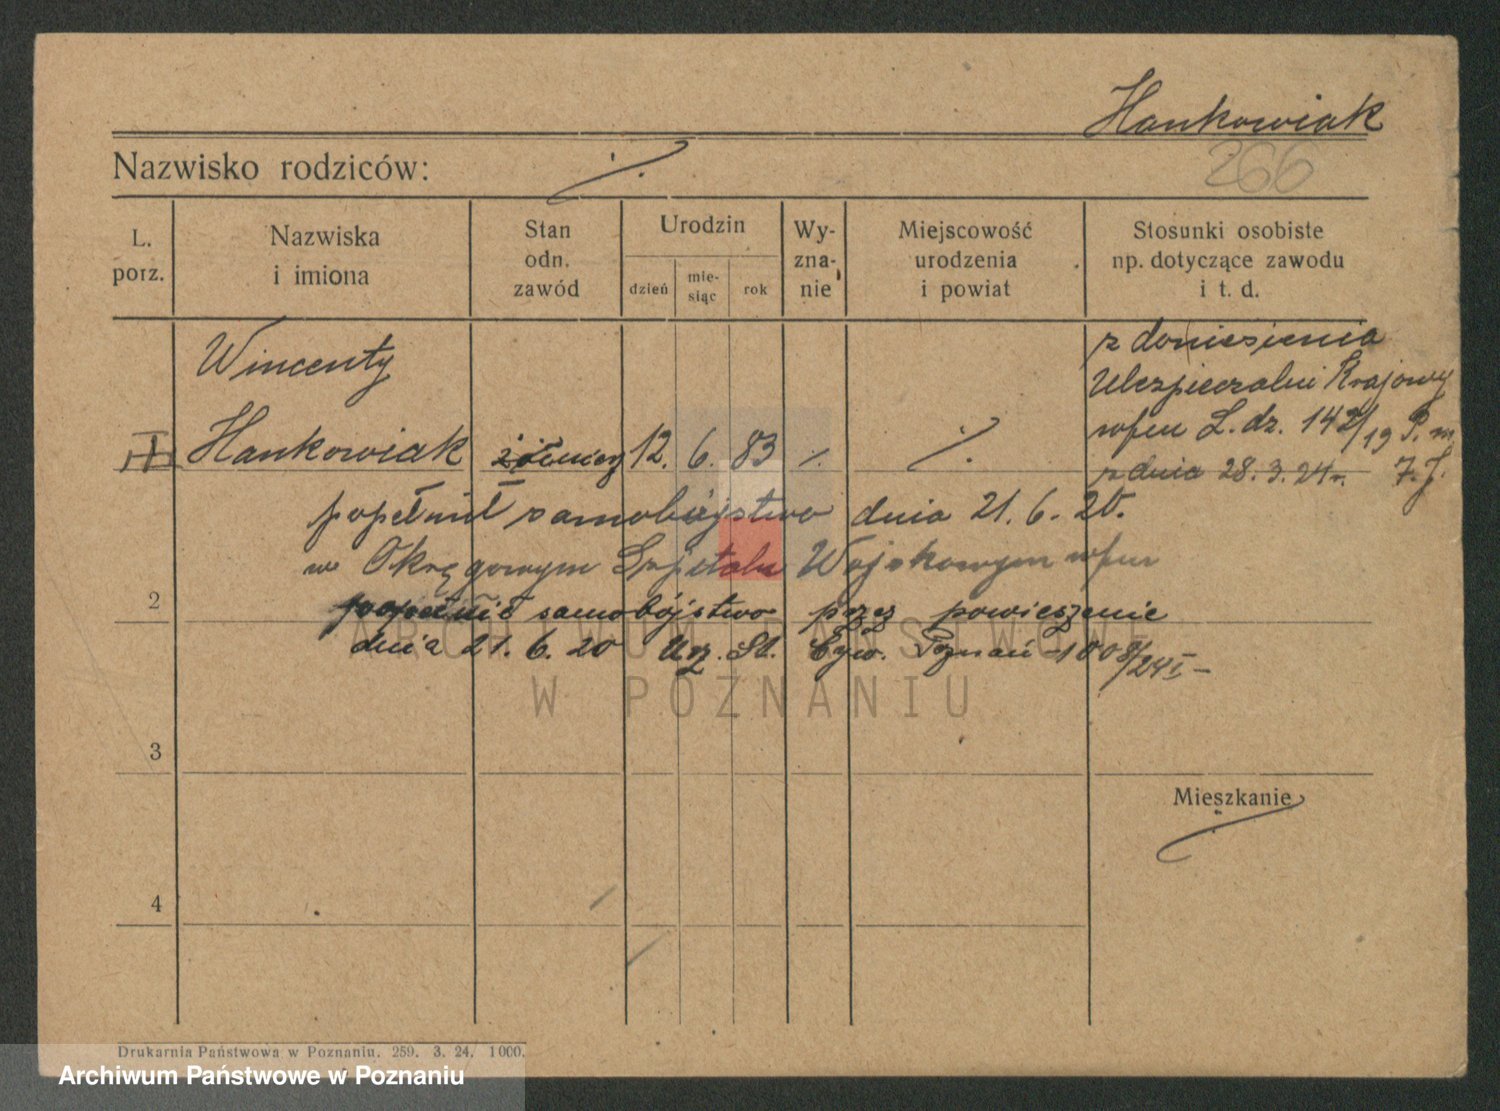 Hankowiak
266
Nazwisko rodziców: ./.
L. porz.
Nazwiska i imiona
Stan odn. zawód
Urodzin
dzień
mie-
siąc
rok
Wy-
zna-
nie
Miejscowość urodzenia i powiat
Stosunki osobiste
np. dotyczące zawodu
i t. d.
Wincenty
Hankowiak żołnierz 12. 6. 83 ./. ./.
z doniesienia
Ubezpieczalni Krajowej
L. dz. 142/19 P. m.
z dnia 28. 3. 24 r. 7. J.
popełnił samobójstwo dnia 21. 6. 20.
w Okręgowym Szpitalu Wojskowym
2 popełnił samobójstwo przez powieszenie
dnia 21. 6. 20 Urz. St. Cyw. Poznań 1008/24 I -
3
Mieszkanie
4
ARCHIWUM PAŃSTWOWE
W POZNANIU
Drukarnia Państwowa w Poznaniu. 259. 3. 24. 1000.
Archiwum Państwowe w Poznaniu